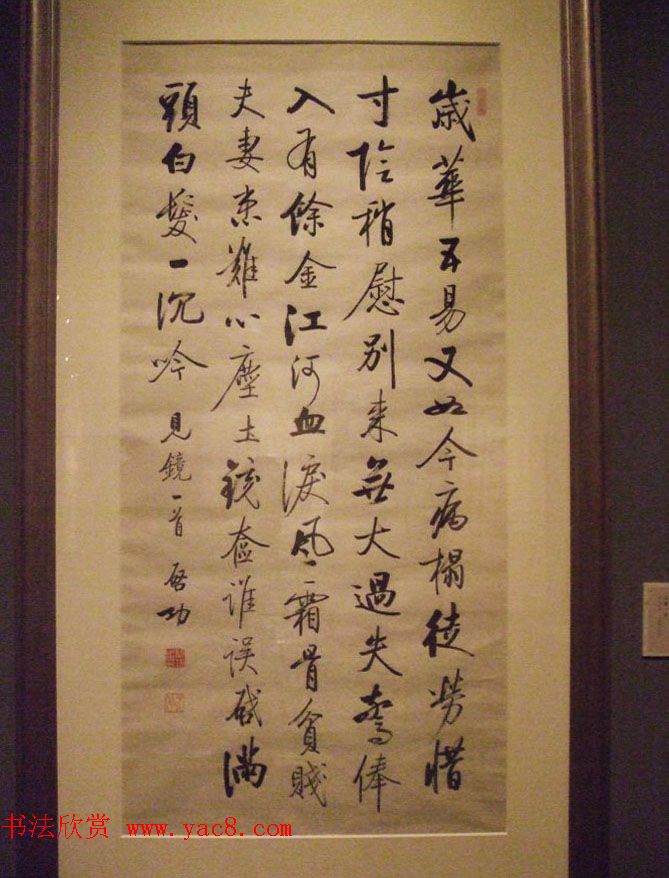 歲華五易又如今病榻徒勞惜
寸陰稍慰別来無大過失驚俸
入有餘金江河血淚風霜骨貧賤
夫妻患難心塵土鏡奩誰誤啟滿
頭白髮一沉吟 見鏡一首 啓功
书法欣赏 www.yac8.com